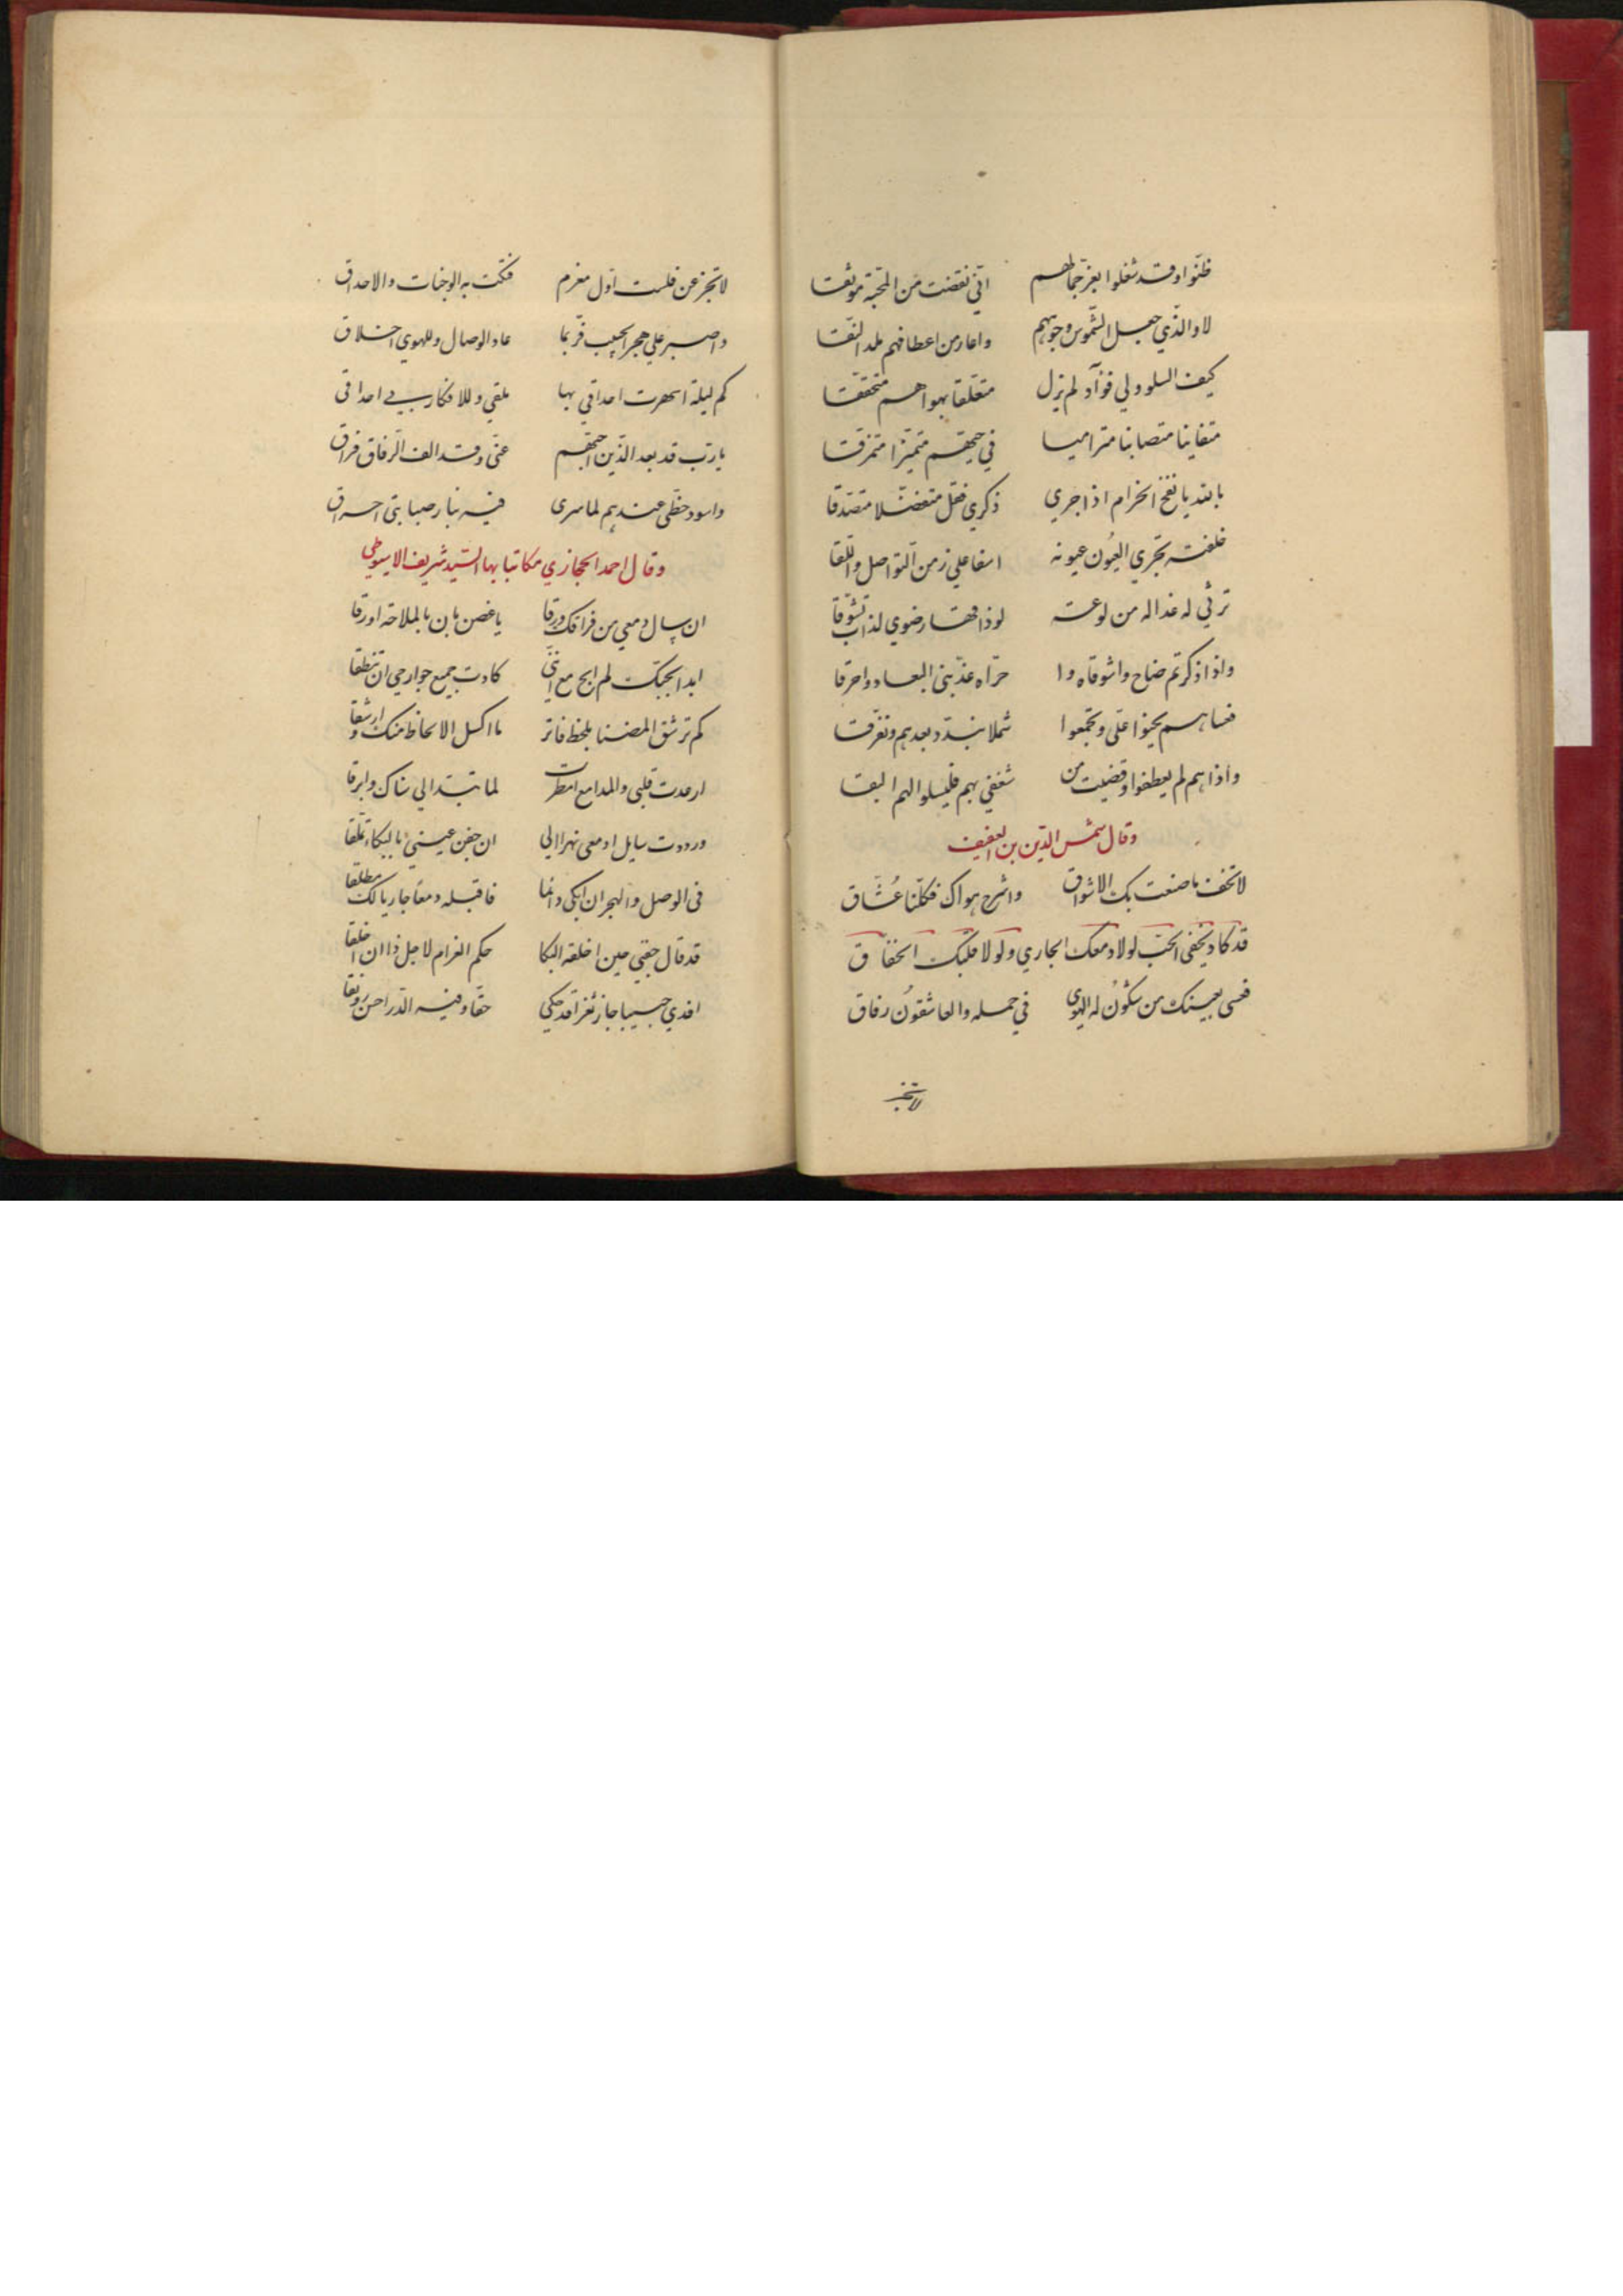 ظنّوا وقد شغلوا بعزّ جمالهم انّي نقضت من المحبّة موثقا
لا والذّي جعل الشّموس وجوههم واعار من اعطافهم ملد النقا
كيف السلو ولي فوآد لم يزل متعلّقا بهواهم متحقّقا
متفانيا متصابيا متراميا في حبّهم متميّزا متمزقا
بالله يا نفخ الخزام اذا جري ذكري فقل متفضّلا متصدّقا
خلفته تجري العيُون عيونه اسفا علي زمن التواصل واللّقا
ترثي له عذاله من لوعة لو ذاقها رضوي لذاب تشوّقا
واذا ذكرتم صاح واشوقاه وا حرّاه عذّبني البعاد واحرقا
فعساهم يحنوا علّي ويجمعوا شملا تبدّد بعدهم وتفرّقا
واذا هم لم يعطفوا وقضيت من شغفي بهم فليسلوا لهم البقا
وقال شمس الدّين بن العفيف
لا تخف ما صنعت بك الاشواق واشرح هواك فكلّنا عُشّاق
قد كاد يخفي الحبّ لولا دمعك الجاري ولولا قلبك الخفّاق
فعسي يعينك من شكوت له الهوي في حمله والعاشقون رفاق
لا تجز
لا تجزعن فلست اوّل مغرم فتكت به الوجنات والاحداق
واصبر علي هجر الحبيب فربّما عاد الوصال وللهوي اخلاق
كم ليلة اسهرت احداقي بها ملقي وللافكار بي احداقي
يا ربّ قد بعد الذّين احبّهم عنّي وقد الف الرّفاق فراق
واسود حظّي عندهم لما سري فيه بنار صبابتي احراق
وقال احمد الحجازي مكاتبا بها السّيد شريف الاسيوطي
ان سال دمعي من فراقك ورقا يا غصن بان بالملاحة اورقا
ابدا بحبّك لم ابح مع انّني كادت جميع جوارحي ان تنطقا
كم ترشق المضنا بلحظ فاتر ما اكسل الالحاظ منك وارشقا
ارعدت قلبي والمدامع امطرت لما تبتد الي سناك وابرقا
ورددت سايل ادمعي نهرا الي ان جفن عيني بالبكاء تملّقا
في الوصل والهجران ابكي دائما فاقبله دمعا جاريا لك مطلقا
قد قال جفني حين اخلقه البكا حكم الغرام لاجل ذا ان اخلقا
افدي حبيبا حاز ثغرا قد حكي حقّا وفيه الدّر احسن رونقا